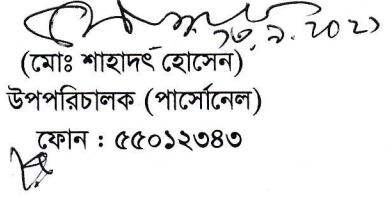 ১৬.৯.২০২১
(মোঃ শাহাদৎ হোসেন)
উপপরিচালক (পার্সোনেল)
ফোন : ৫৫০১২৩৪৩